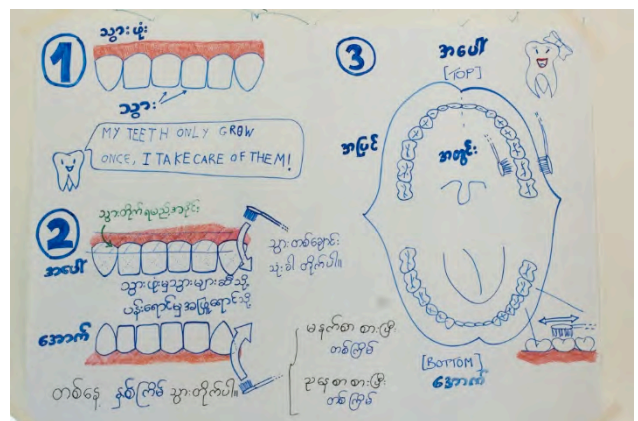 1
သွားဖုံး
သွား
MY TEETH ONLY GROW
ONCE, I TAKE CARE OF THEM!
2
သွားတိုက်ရမည့်အပိုင်း
အပေါ်
သွားတစ်ချောင်း
သုံးခါ တိုက်ပါ။
သွားဖုံးမှသွားများဆီသို့
ပန်းရောင်မှအဖြူရောင်သို့
အောက်
တစ်နေ့ နှစ်ကြိမ် သွားတိုက်ပါ။
မနက်စာ စားပြီး
တစ်ကြိမ်
ညနေစာ စားပြီး
တစ်ကြိမ်
3
အပေါ်
[TOP]
အပြင်
အတွင်း
[BOTTOM]
အောက်